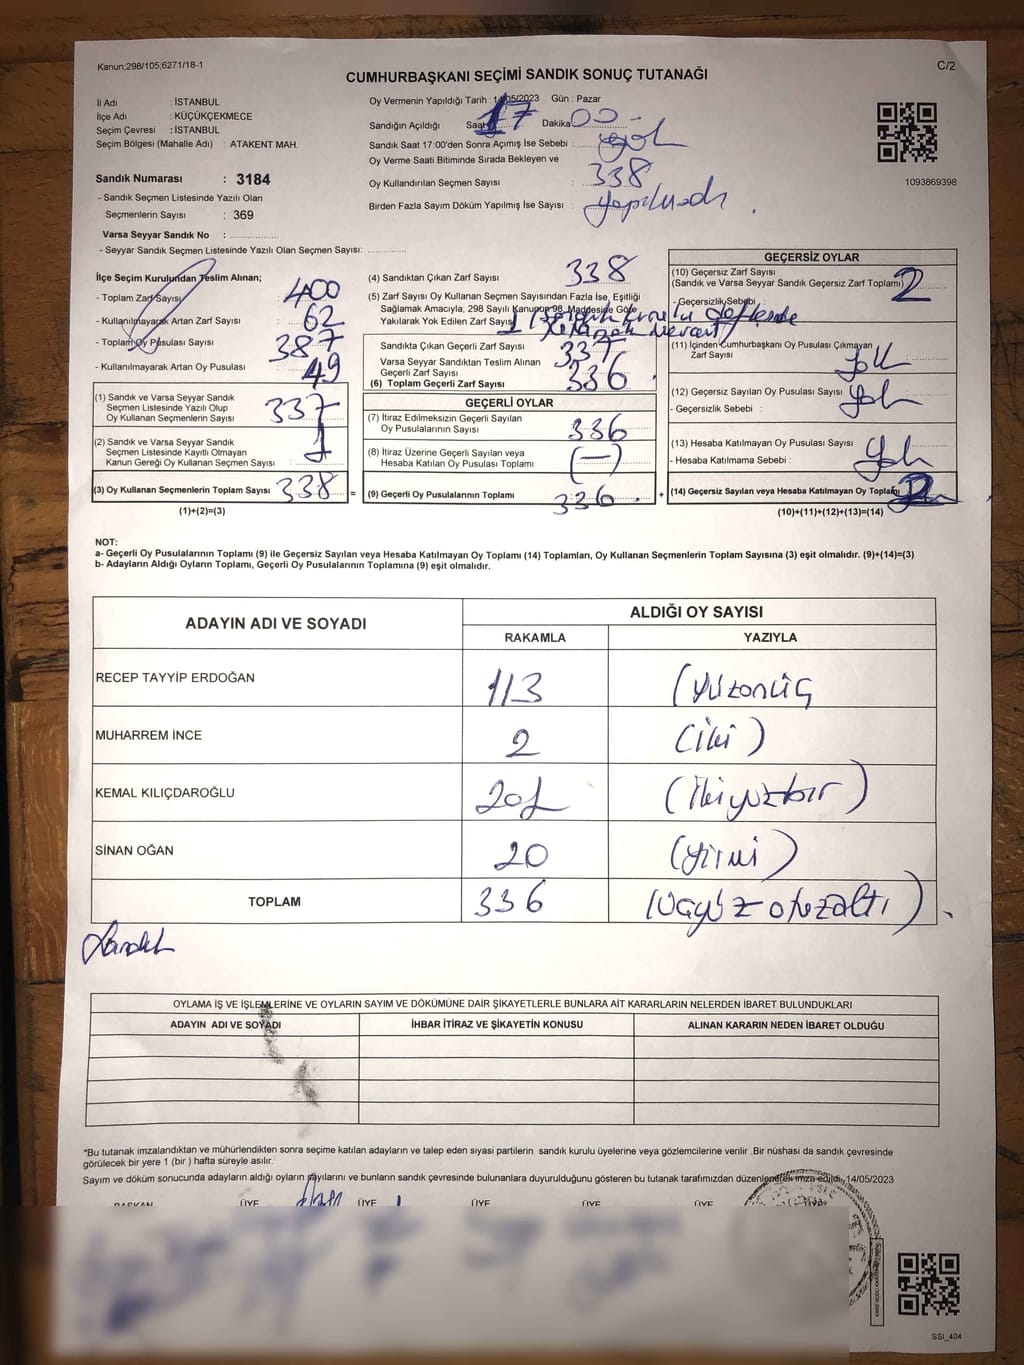 Kanun;298/105;6271/18-1
C/2
CUMHURBAŞKANI SEÇİMİ SANDIK SONUÇ TUTANAĞI
İl Adı : İSTANBUL
İlçe Adı : KÜÇÜKÇEKMECE
Seçim Çevresi : İSTANBUL
Seçim Bölgesi (Mahalle Adı) : ATAKENT MAH.
Sandık Numarası : 3184
- Sandık Seçmen Listesinde Yazılı Olan
Seçmenlerin Sayısı : 369
Varsa Seyyar Sandık No :
- Seyyar Sandık Seçmen Listesinde Yazılı Olan Seçmen Sayısı:
Oy Vermenin Yapıldığı Tarih : 14/05/2023 Gün : Pazar
Sandığın Açıldığı Saat 17 Dakika 00
Sandık Saat 17:00'den Sonra Açımış İse Sebebi :
Oy Verme Saati Bitiminde Sırada Bekleyen ve
Oy Kullandırılan Seçmen Sayısı : 338
Birden Fazla Sayım Döküm Yapılmış İse Sayısı : yapılmadı.
1093869398
İlçe Seçim Kurulundan Teslim Alınan;
- Toplam Zarf Sayısı : 400
- Kullanılmayarak Artan Zarf Sayısı : 62
- Toplam Oy Pusulası Sayısı : 387
- Kullanılmayarak Artan Oy Pusulası : 49
(1) Sandık ve Varsa Seyyar Sandık
Seçmen Listesinde Yazılı Olup
Oy Kullanan Seçmenlerin Sayısı : 337
(2) Sandık ve Varsa Seyyar Sandık
Seçmen Listesinde Kayıtlı Olmayan
Kanun Gereği Oy Kullanan Seçmen Sayısı : 1
(3) Oy Kullanan Seçmenlerin Toplam Sayısı : 338
(1)+(2)=(3)
(4) Sandıktan Çıkan Zarf Sayısı : 338
(5) Zarf Sayısı Oy Kullanan Seçmen Sayısından Fazla İse, Eşitliği
Sağlamak Amacıyla; 298 Sayılı Kanunun 98. Maddesine Göre
Yakılarak Yok Edilen Zarf Sayısı 1
Sandıkta Çıkan Geçerli Zarf Sayısı : 337
Varsa Seyyar Sandıktan Teslim Alınan
Geçerli Zarf Sayısı
(6) Toplam Geçerli Zarf Sayısı : 336
GEÇERLİ OYLAR
(7) İtiraz Edilmeksizin Geçerli Sayılan
Oy Pusulalarının Sayısı : 336
(8) İtiraz Üzerine Geçerli Sayılan veya
Hesaba Katılan Oy Pusulası Toplamı : (—)
= (9) Geçerli Oy Pusulalarının Toplamı 336
GEÇERSİZ OYLAR
(10) Geçersiz Zarf Sayısı
(Sandık ve Varsa Seyyar Sandık Geçersiz Zarf Toplamı) : 2
- Geçersizlik Sebebi :
(11) İçinden Cumhurbaşkanı Oy Pusulası Çıkmayan
Zarf Sayısı : Yok
(12) Geçersiz Sayılan Oy Pusulası Sayısı : Yok
- Geçersizlik Sebebi :
(13) Hesaba Katılmayan Oy Pusulası Sayısı : Yok
- Hesaba Katılmama Sebebi :
+ (14) Geçersiz Sayılan veya Hesaba Katılmayan Oy Toplamı 2
(10)+(11)+(12)+(13)=(14)
NOT:
a- Geçerli Oy Pusulalarının Toplamı (9) ile Geçersiz Sayılan veya Hesaba Katılmayan Oy Toplamı (14) Toplamları, Oy Kullanan Seçmenlerin Toplam Sayısına (3) eşit olmalıdır. (9)+(14)=(3)
b- Adayların Aldığı Oyların Toplamı, Geçerli Oy Pusulalarının Toplamına (9) eşit olmalıdır.
ADAYIN ADI VE SOYADI ALDIĞI OY SAYISI
RAKAMLA YAZIYLA
RECEP TAYYİP ERDOĞAN 113 (yüzonüç
MUHARREM İNCE 2 (iki)
KEMAL KILIÇDAROĞLU 201 (ikiyüzbir)
SİNAN OĞAN 20 (yirmi)
TOPLAM 336 (üçyüz otuzaltı).
OYLAMA İŞ VE İŞLEMLERİNE VE OYLARIN SAYIM VE DÖKÜMÜNE DAİR ŞİKAYETLERLE BUNLARA AİT KARARLARIN NELERDEN İBARET BULUNDUKLARI
ADAYIN ADI VE SOYADI İHBAR İTİRAZ VE ŞİKAYETİN KONUSU ALINAN KARARIN NEDEN İBARET OLDUĞU
*Bu tutanak imzalandıktan ve mühürlendikten sonra seçime katılan adayların ve talep eden siyasi partilerin sandık kurulu üyelerine veya gözlemcilerine verilir .Bir nüshası da sandık çevresinde
görülecek bir yere 1 (bir ) hafta süreyle asılır.
Sayım ve döküm sonucunda adayların aldığı oyların sayılarını ve bunların sandık çevresinde bulunanlara duyurulduğunu gösteren bu tutanak tarafımızdan düzenlenerek imza edildi, 14/05/2023
BAŞKAN ÜYE ÜYE ÜYE ÜYE ÜYE
SSI_404